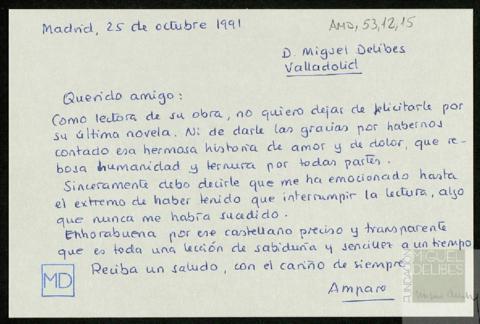 Madrid, 25 de octubre 1991
AMD, 53, 12, 15
D. Miguel Delibes
Valladolid
Querido amigo:
Como lectora de su obra, no quiero dejar de felicitarle por
su última novela. Ni de darle las gracias por habernos
contado esa hermosa historia de amor y de dolor, que re-
bosa humanidad y ternura por todas partes.
Sinceramente debo decirle que me ha emocionado hasta
el extremo de haber tenido que interrumpir la lectura, algo
que nunca me había sucedido.
Enhorabuena por ese castellano preciso y transparente
que es toda una lección de sabiduría y sencillez a un tiempo
Reciba un saludo, con el cariño de siempre
Amparo
MD
FUNDACIÓN
MIGUEL
DELIBES